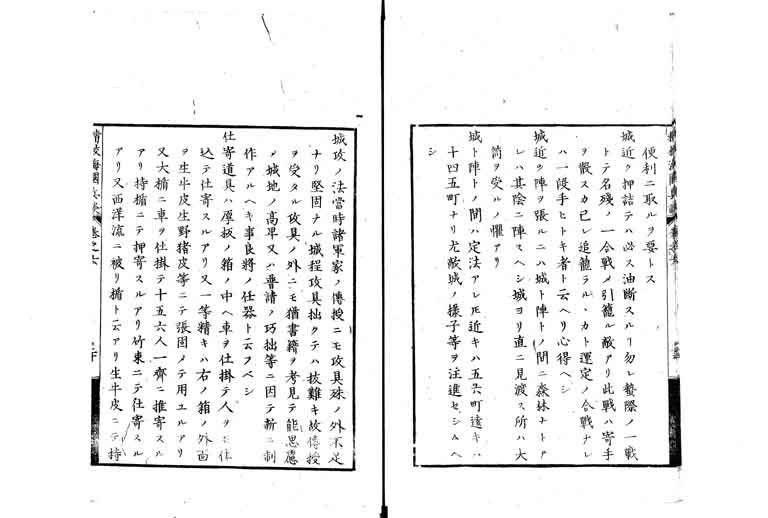 便利ニ取ルヲ要トス
城近ク押詰テハ必ス油断スルヿ勿レ蟄際ノ一戦
ト名残ノ一合戦メ引籠ル敵アリ此戦ハ寄手
ヲ散スカ已レ追籠ラル、カト運定ノ合戦ナレ
ハ一段手ヒトキ者ト云ヘリ心得ヘシ
城近ク陣ヲ張ルニハ城ト陣トノ間ニ森林ナトア
レハ其陰ニ陣スヘシ城ヨリ直ニ見渡ス所ハ大
筒ヲ受ルノ懼アリ
城ト陣トノ間ハ定法アレ𪜈近キハ五六町遠キハ
十四五町ナリ尤敵城ノ様子等ヲ注進セシムヘ
シ
城攻ノ法當時諸軍家ノ傳授ニモ攻具殊ノ外不足
ナリ堅固ナル城程攻具拙クテハ抜難キ故傳授
ヲ受タル攻具ノ外ニモ猶書籍ヲ考見テ能思慮
メ城地ノ高卑又ハ普請ノ巧拙等ニ因テ新ニ制
作アルヘキ事良將ノ仕器ト云フベシ
仕寄道具ハ厚板ノ箱ノ中ヘ車ヲ仕掛テ人ヲ
込テ仕寄スルアリ又一等精キハ右ノ箱ノ外面
ヲ生牛皮生野猪皮等ニテ張固ノテ用ユルアリ
又大楯ニ車ヲ仕掛テ十五六人一齊ニ推寄スル
アリ持楯ニテ押寄スルアリ竹束ニテ仕寄スル
アリ又西洋流ニ被リ楯ト云アリ生牛皮ニテ持
精校海國兵談 巻之六